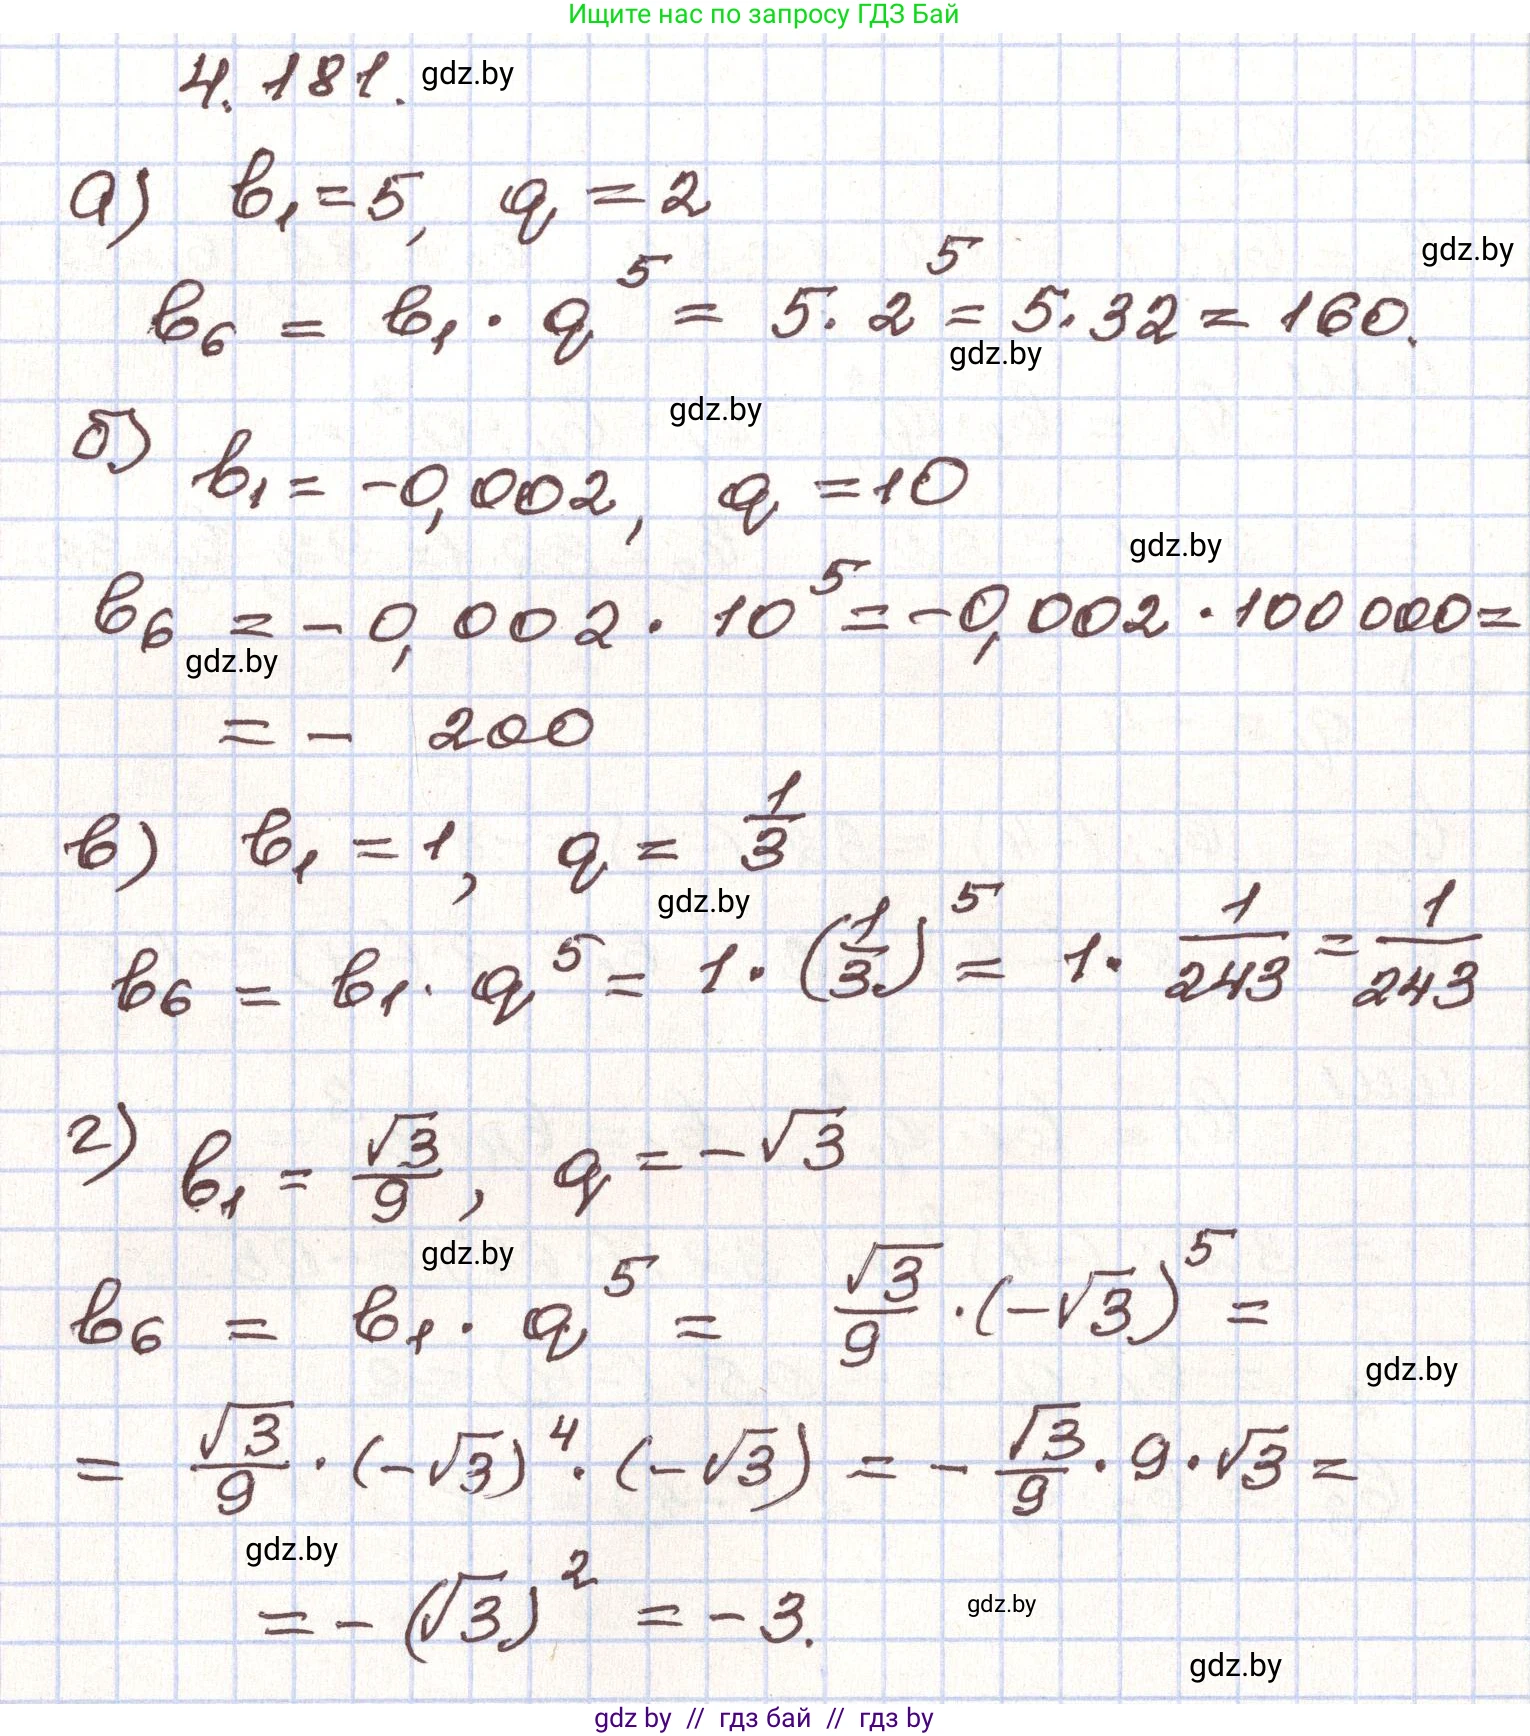 Ищите нас по запросу ГДЗ Бай
4.181. gdz.by
а) b₁ = 5, q = 2
gdz.by
b₆ = b₁ · q⁵ = 5 · 2⁵ = 5 · 32 = 160.
gdz.by
gdz.by
б) b₁ = -0,002, q = 10
gdz.by
b₆ = -0,002 · 10⁵ = -0,002 · 100 000 =
gdz.by
= - 200
в) b₁ = 1, q = 1/3
gdz.by
b₆ = b₁ · q⁵ = 1 · (1/3)⁵ = 1 · 1/243 = 1/243
г) b₁ = √3/9, q = -√3
gdz.by
b₆ = b₁ · q⁵ = √3/9 · (-√3)⁵ =
gdz.by
= √3/9 · (-√3)⁴ · (-√3) = - √3/9 · 9 · √3 =
gdz.by
= - (√3)² = - 3.
gdz.by
gdz.by
gdz by // гдз бай // гдз by